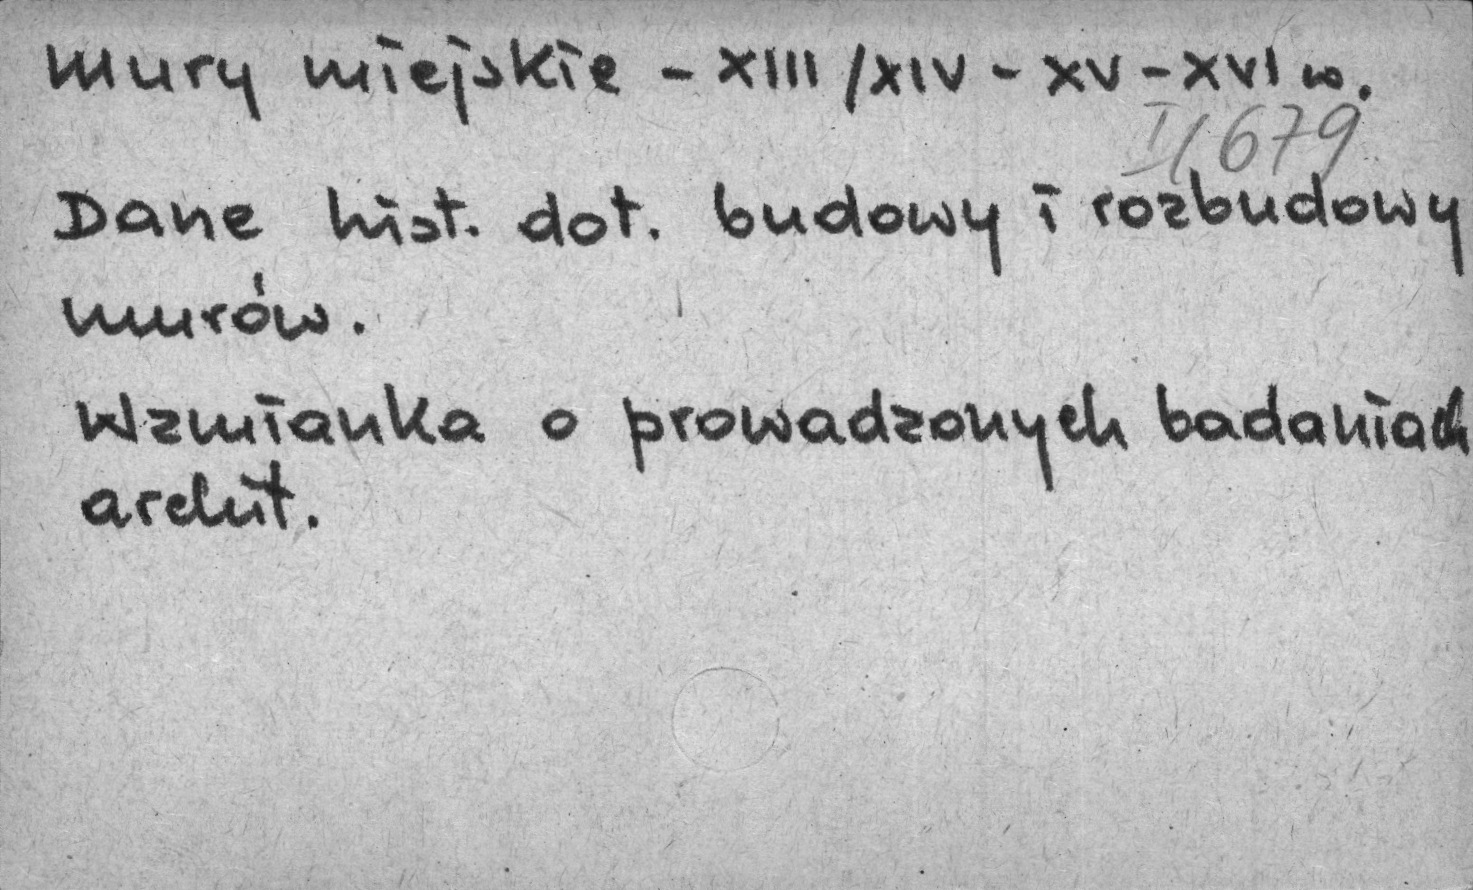 Mury miejskie - XIII/XIV - XV - XVI w.
II/679
Dane hist. dot. budowy i rozbudowy
murów.
Wzmianka o prowadzonych badaniach
archit.